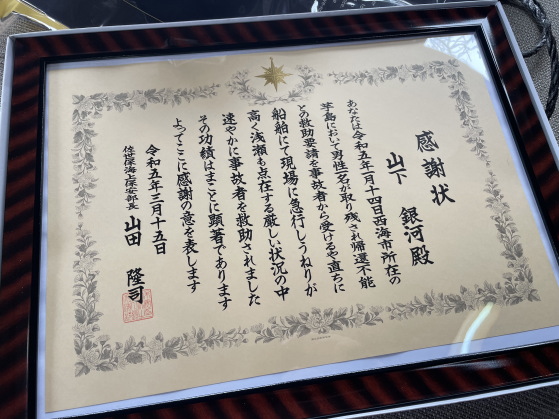 感謝状
山下 銀河殿
あなたは令和五年一月十四日西海市所在の
芋島において男性一名が取り残され帰還不能
との救助要請を事故者から受けるや直ちに
船舶にて現場に急行しうねりが
高く浅瀬も点在する厳しい状況の中
速やかに事故者を救助されました
その功績はまことに顕著であります
よってここに感謝の意を表します
令和五年三月十五日
佐世保海上保安部長 山田 隆司